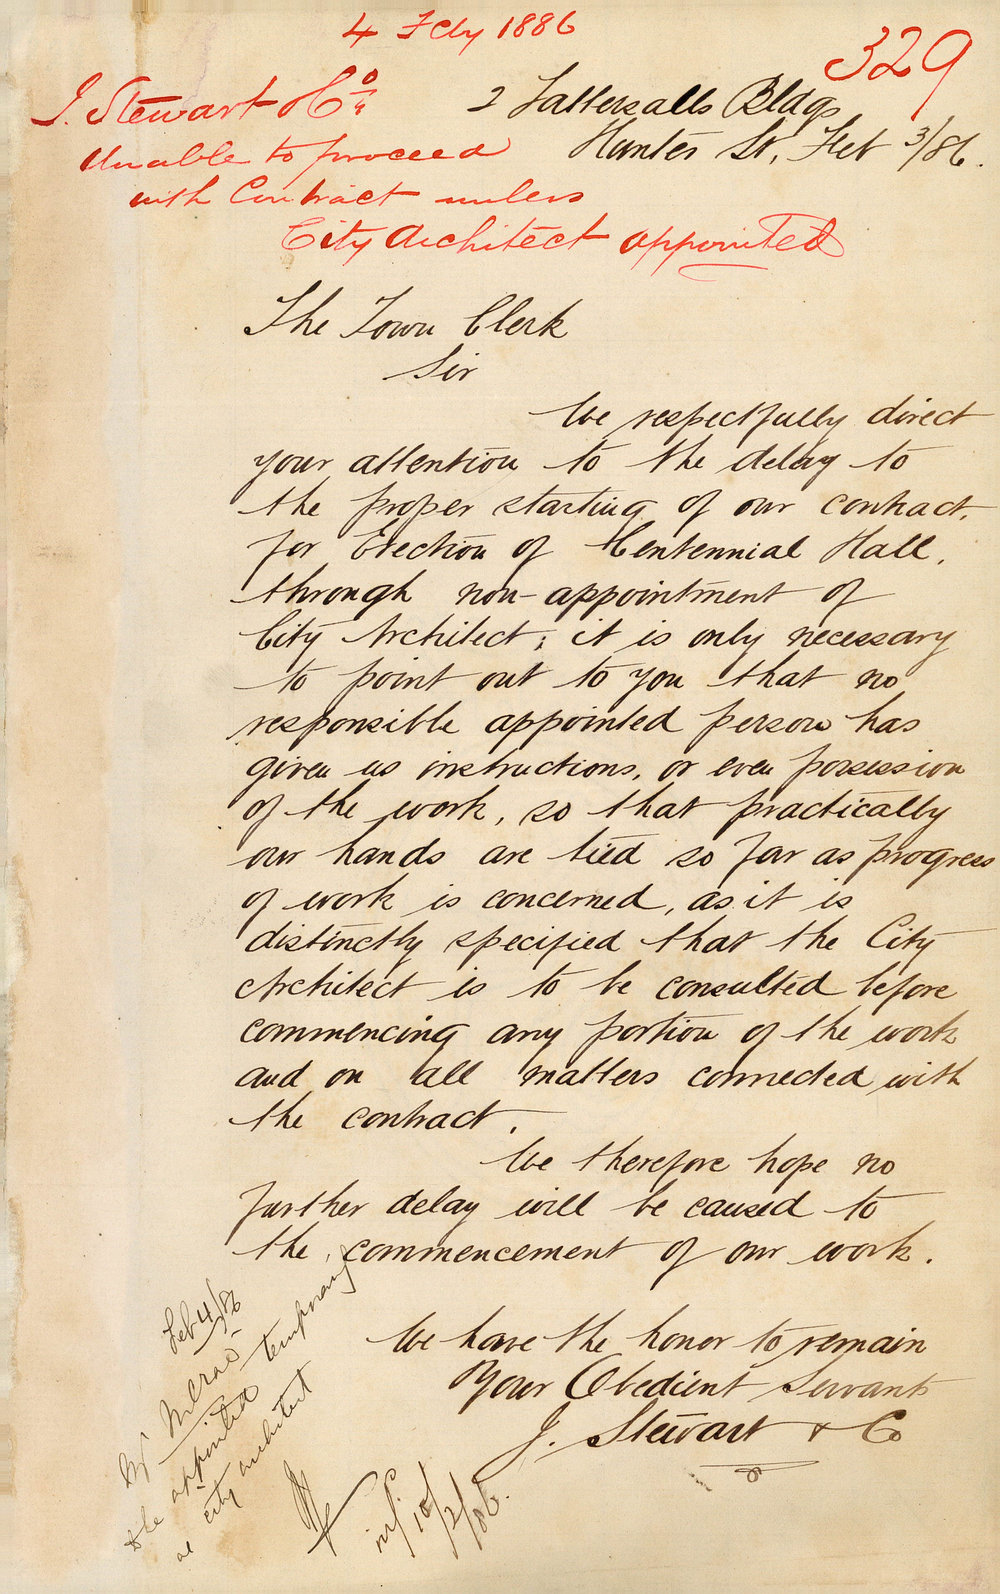 4 Feby 1886
329
J. Stewart & Co
Unable to proceed
with Contract unless
City Architect appointed
2 Tattersalls Bldgs
Hunter St, Feb 3/86.
The Town Clerk
Sir
We respectfully direct
your attention to the delay to
the proper starting of our contract,
for Erection of Centennial Hall,
through non-appointment of
City Architect; it is only necessary
to point out to you that no
responsible appointed person has
given us instructions, or even possession
of the work, so that practically
our hands are tied so far as progress
of work is concerned, as it is
distinctly specified that the City
Architect is to be consulted before
commencing any portion of the work
and on all matters connected with
the contract.
We therefore hope no
further delay will be caused to
the commencement of our work.
We have the honor to remain
Your Obedient Servants
J. Stewart & Co
Feb 4/86
Mr McRae
to be appointed temporary
as city architect
inf. 10/2/86.